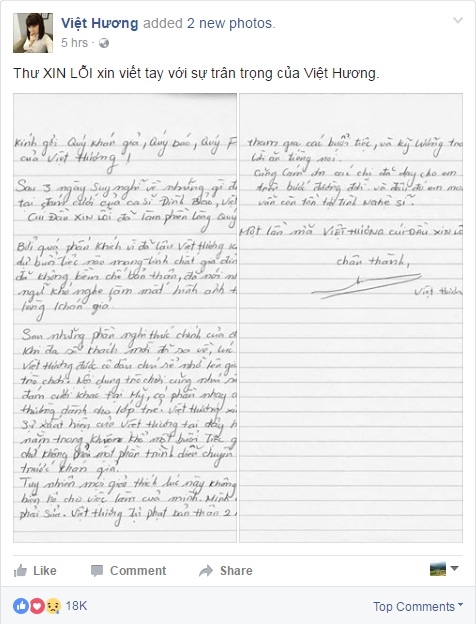 Việt Hương added 2 new photos.
5 hrs
Thư XIN LỖI xin viết tay với sự trân trọng của Việt Hương.
Kính gởi Quý khán giả, Quý báo, Quý F
của Việt Hương!
Sau 3 ngày suy nghĩ về những gì đ
tại đám cưới của ca sĩ Đinh Bảo, Việ
Cúi Đầu XIN Lỗi đã làm phiền lòng Quý
Bởi quá phấn khích vì đã lâu Việt Hương k
dự buổi tiệc nào mang tính chất gia đìn
đã không kềm chế bản thân, đã nói n
ngữ khó nghe làm mất hình ảnh t
lòng khán giả.
Sau những phần nghi thức chính của đ
khi đa số khách mời đã ra về, lúc
Việt Hương được cô dâu chú rể nhờ lên g
trò chơi. Nội dung trò chơi cũng như s
đám cưới khác tại Mỹ, có phần nhạy c
thường dành cho lớp trẻ. Việt Hương xi
sự xuất hiện của Việt Hương tại đây h
nằm trong khuôn khổ một buổi tiệc g
chứ không phải một phần trình diễn chuyên
trước khán giả.
Tuy nhiên mọi giải thích lúc này không
biện hộ cho việc làm của mình. Mình
phải sửa. Việt Hương tự phạt bản thân 2
tham gia các buổi tiệc, và kỷ luông tro
lời ăn tiếng nói.
Cũng cảm ơn các chị đã dạy cho em
trên bước đường đời và đến đó em mo
vẫn còn tồn tại tình nghệ sĩ.
Một lần nữa VIỆT HƯƠNG CÚI ĐẦU XIN LỖI
chân thành,
Việt Hươn
Like Comment Share
18K Top Comments